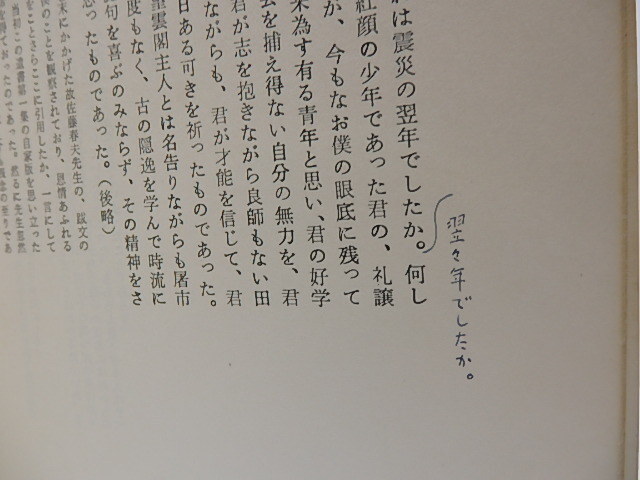 は震災の翌年でしたか。何し
紅顔の少年であった君の、礼譲
が、今もなお僕の眼底に残って
来為す有る青年と思い、君の好学
を捕え得ない自分の無力を、君
君が志を抱きながら良師もない田
ながらも、君が才能を信じて、君
日ある可きを祈ったものであった。
重雲閣主人とは名告りながらも屠市
度もなく、古の隠逸を学んで時流に
句を喜ぶのみならず、その精神をさ
思ったものであった。(後略)
末にかかげた故佐藤春夫先生の、跋文の
のことを観察されており、恩情あふれる
をことさらここに引用したか、一言にして
当初この遺書第一集の自家版を思い立った
得ておったのであった。然るに先生忽然
翌々年でしたか。